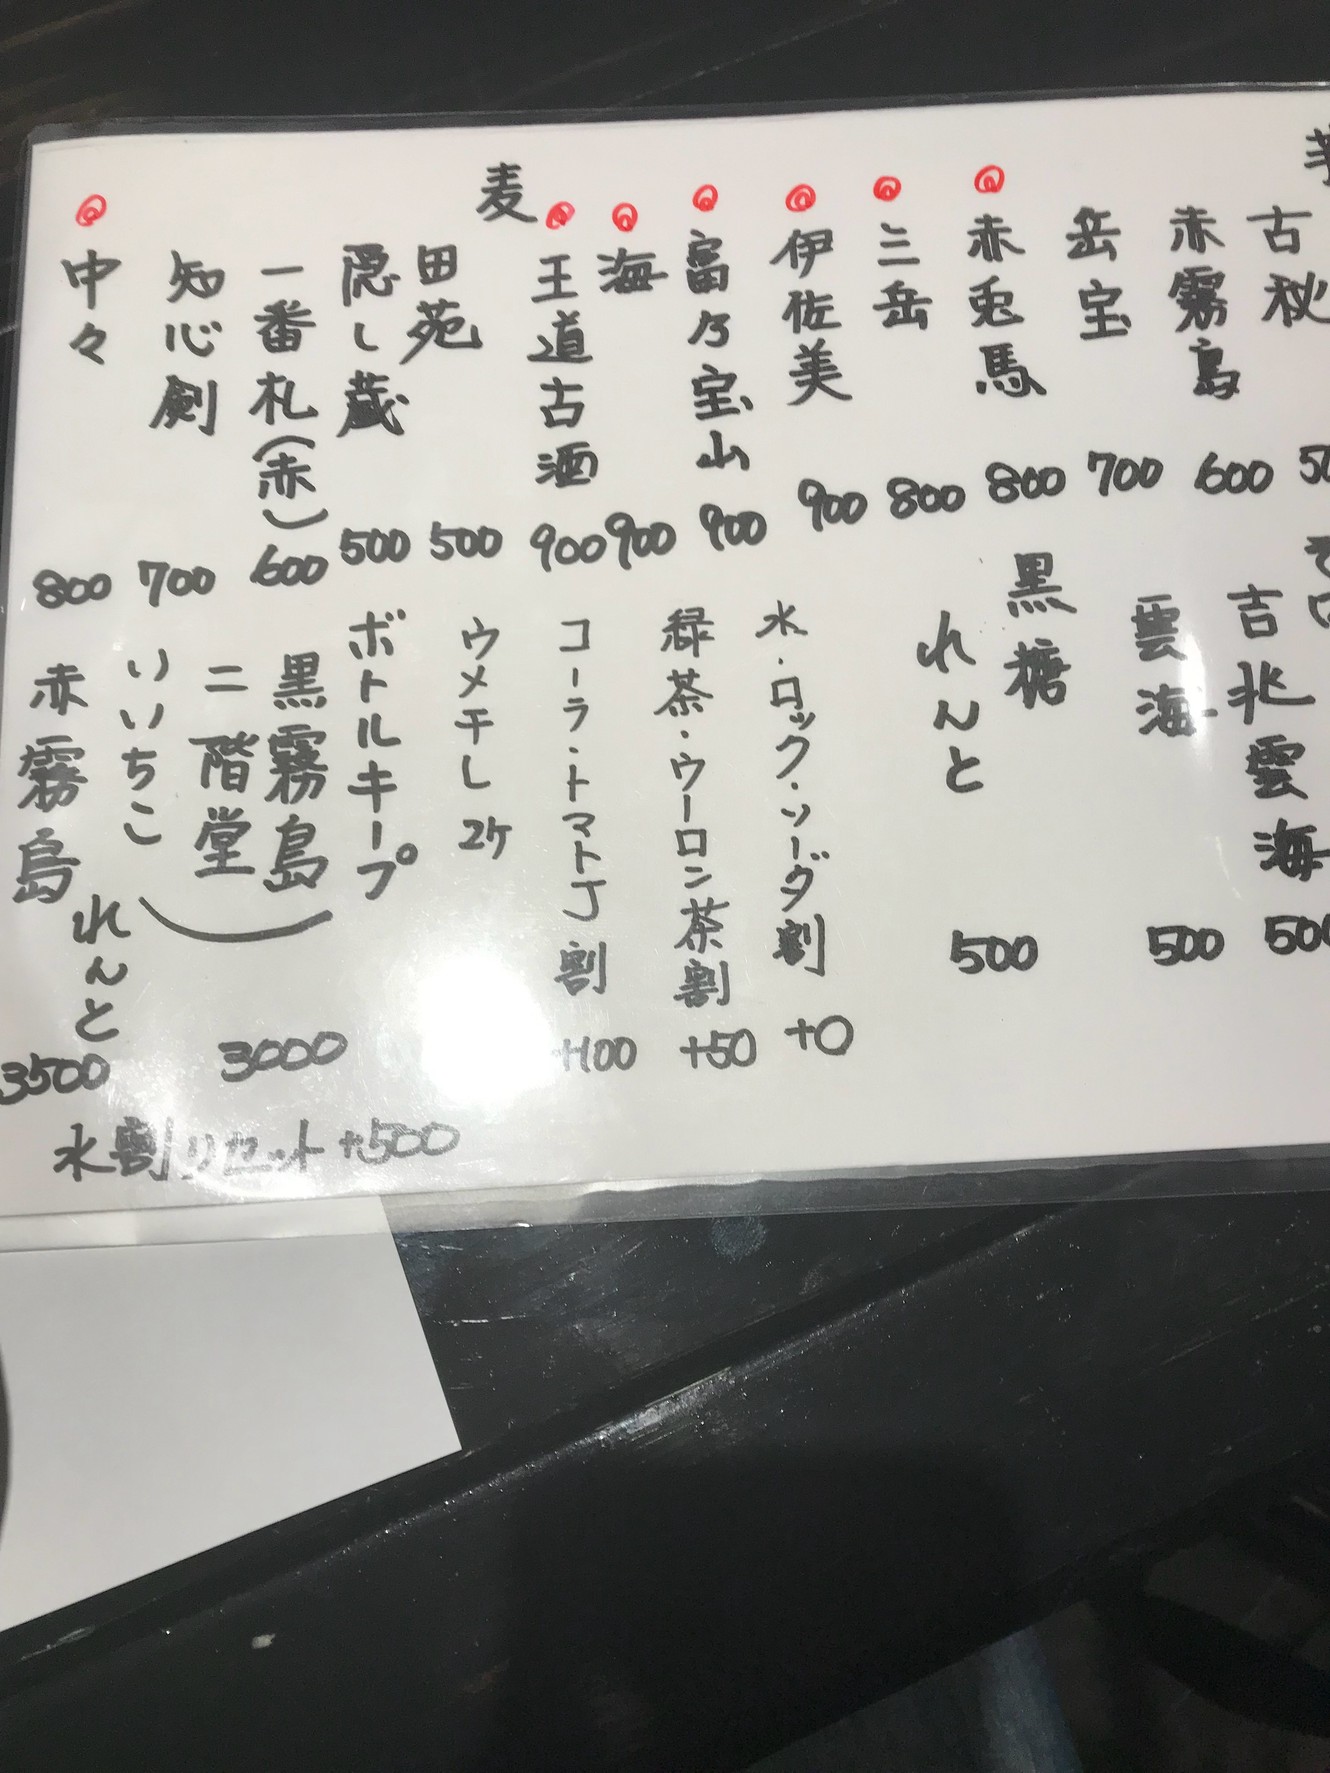 古秘
赤霧島 600
岳宝 700
赤兎馬 800
三岳 800
伊佐美 900
富乃宝山 900
海 900
王道古酒 900
麦
田苑 500
隠し蔵 500
一番札(赤) 600
知心剣 700
中々 800
吉兆雲海 500
雲海 500
黒糖
れんと 500
水・ロック・ソーダ割 +0
緑茶・ウーロン茶割 +50
コーラ・トマトJ割 +100
ウメ干し 2ケ
ボトルキープ
黒霧島
二階堂
いいちこ
3000
赤霧島
れんと
3500
水割りセット +500